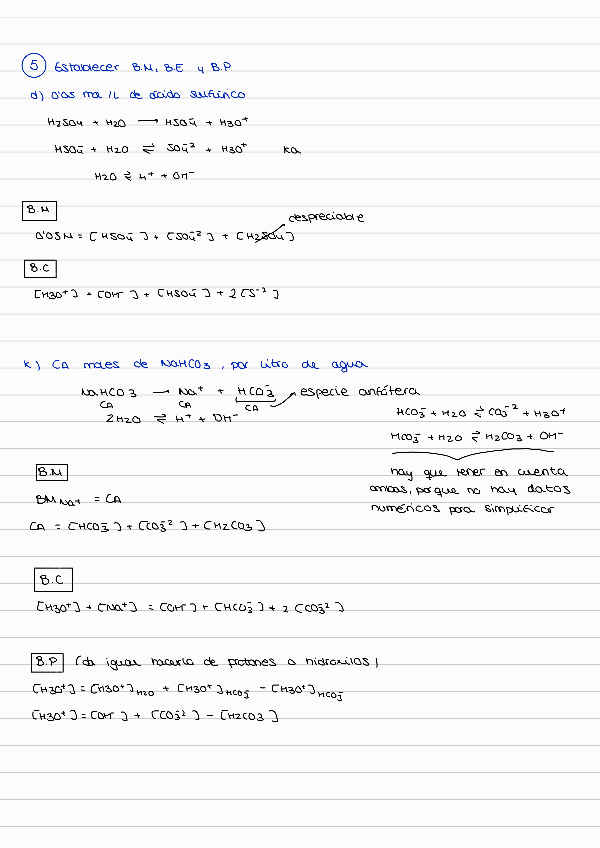 5 Establecer B.M, B.E y B.P
d) 0'05 mol/L de ácido sulfúrico
H2SO4 + H2O → HSO4⁻ + H3O⁺
HSO4⁻ + H2O ⇌ SO4⁻² + H3O⁺ Ka
H2O ⇌ H⁺ + OH⁻
B.M
despreciable
0'05M = [HSO4⁻] + [SO4⁻²] + [H2SO4]
B.C
[H3O⁺] = [OH⁻] + [HSO4⁻] + 2[S⁻²]
k) CA moles de NaHCO3, por litro de agua
NaHCO3 → Na⁺ + HCO3⁻ especie anfótera
CA CA CA
2H2O ⇌ H⁺ + OH⁻
HCO3⁻ + H2O ⇌ CO3⁻² + H3O⁺
HCO3⁻ + H2O ⇌ H2CO3 + OH⁻
hay que tener en cuenta
ambas, porque no hay datos
numéricos para simplificar
B.M
BM Na⁺ = CA
CA = [HCO3⁻] + [CO3⁻²] + [H2CO3]
B.C
[H3O⁺] + [Na⁺] = [OH⁻] + [HCO3⁻] + 2[CO3⁻²]
B.P (da igual hacerlo de protones o hidroxilos)
[H3O⁺] = [H3O⁺]H2O + [H3O⁺]HCO3⁻ - [H3O⁺]HCO3⁻
[H3O⁺] = [OH⁻] + [CO3⁻²] - [H2CO3]